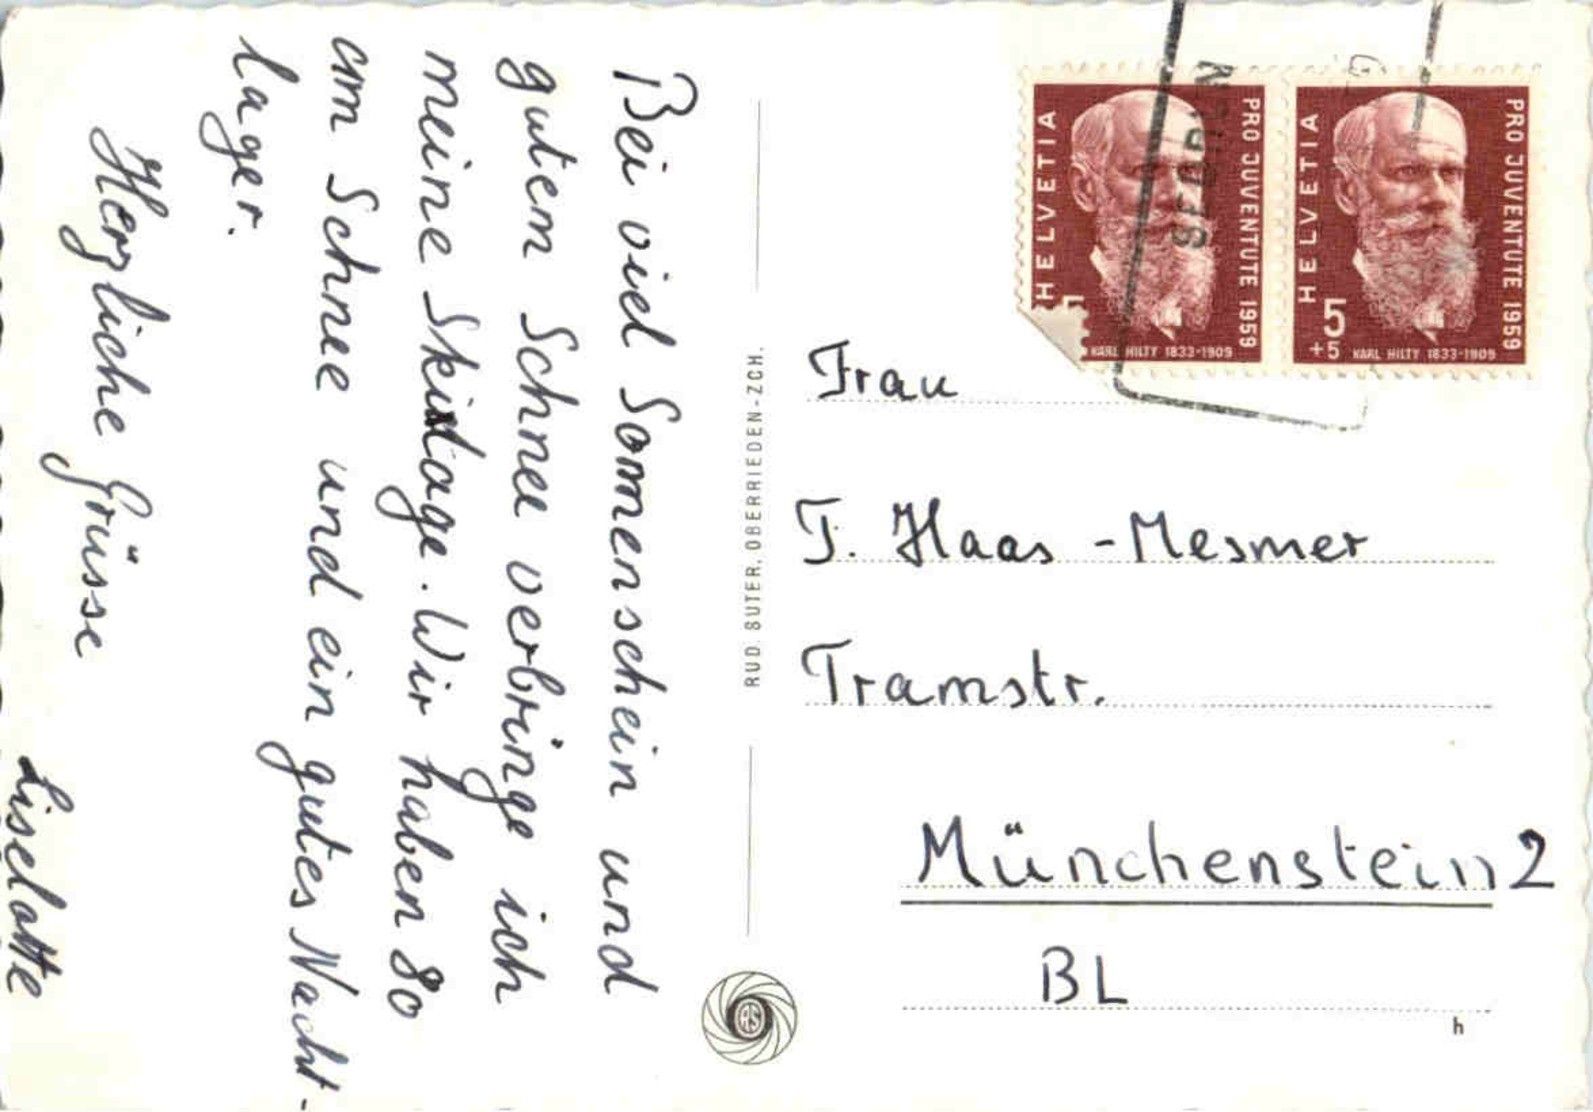 Bei viel Sonnenschein und
gutem Schnee verbringe ich
meine Skitage. Wir haben 80
cm Schnee und ein gutes Nacht-
lager.
Herzliche Grüsse
Liselotte
RUD. SUTER, OBERRIEDEN-ZCH.
RS
HELVETIA
PRO JUVENTUTE 1959
KARL HILTY 1833-1909
SEDRUN
HELVETIA
PRO JUVENTUTE 1959
5
+5
KARL HILTY 1833-1909
Frau
T. Haas-Mesmer
Tramstr.
Münchenstein 2
BL
h